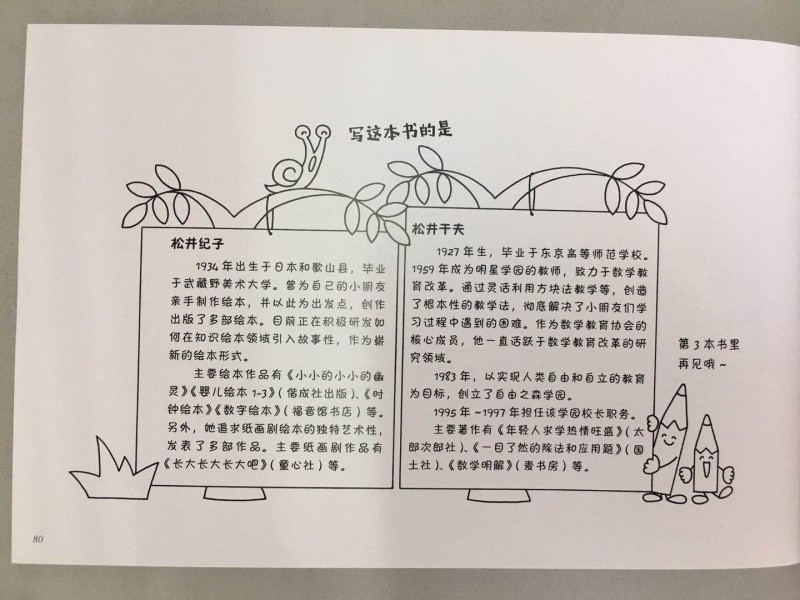 写这本书的是
松井纪子
1934年出生于日本和歌山县，毕业
于武藏野美术大学。曾为自己的小朋友
亲手制作绘本，并以此为出发点，创作
出版了多部绘本。目前正在积极研发如
何在知识绘本领域引入故事性，作为崭
新的绘本形式。
主要绘本作品有《小小的小小的幽
灵》《婴儿绘本1-3》(偕成社出版)、《时
钟绘本》《数字绘本》(福音馆书店)等。
另外，她追求纸画剧绘本的独特艺术性，
发表了多部作品。主要纸画剧作品有
《长大长大长大吧》(童心社)等。
松井干夫
1927年生，毕业于东京高等师范学校。
1959年成为明星学园的教师，致力于数学教
育改革。通过灵活利用方块法教学等，创造
了根本性的教学法，彻底解决了小朋友们学
习过程中遇到的困难。作为数学教育协会的
核心成员，他一直活跃于数学教育改革的研
究领域。
1983年，以实现人类自由和自立的教育
为目标，创立了自由之森学园。
1995年~1997年担任该学园校长职务。
主要著作有《年轻人求学热情旺盛》(太
郎次郎社)、《一目了然的除法和应用题》(国
土社)、《数学明解》(麦书房)等。
第3本书里
再见哦~
80